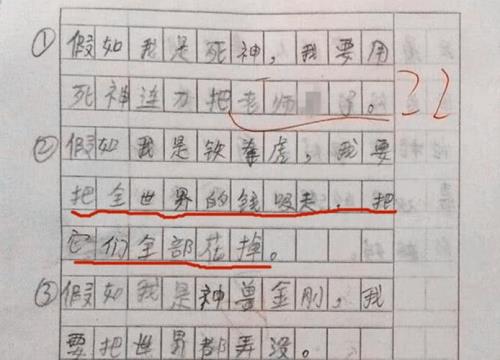 ① 假如我是死神，我要用
死神连刀把老师了。??
② 假如我是铁拳虎，我要
把全世界的钱吸，把
它们全部花掉。
③ 假如我是神兽金刚，我
要把世界都弄没。